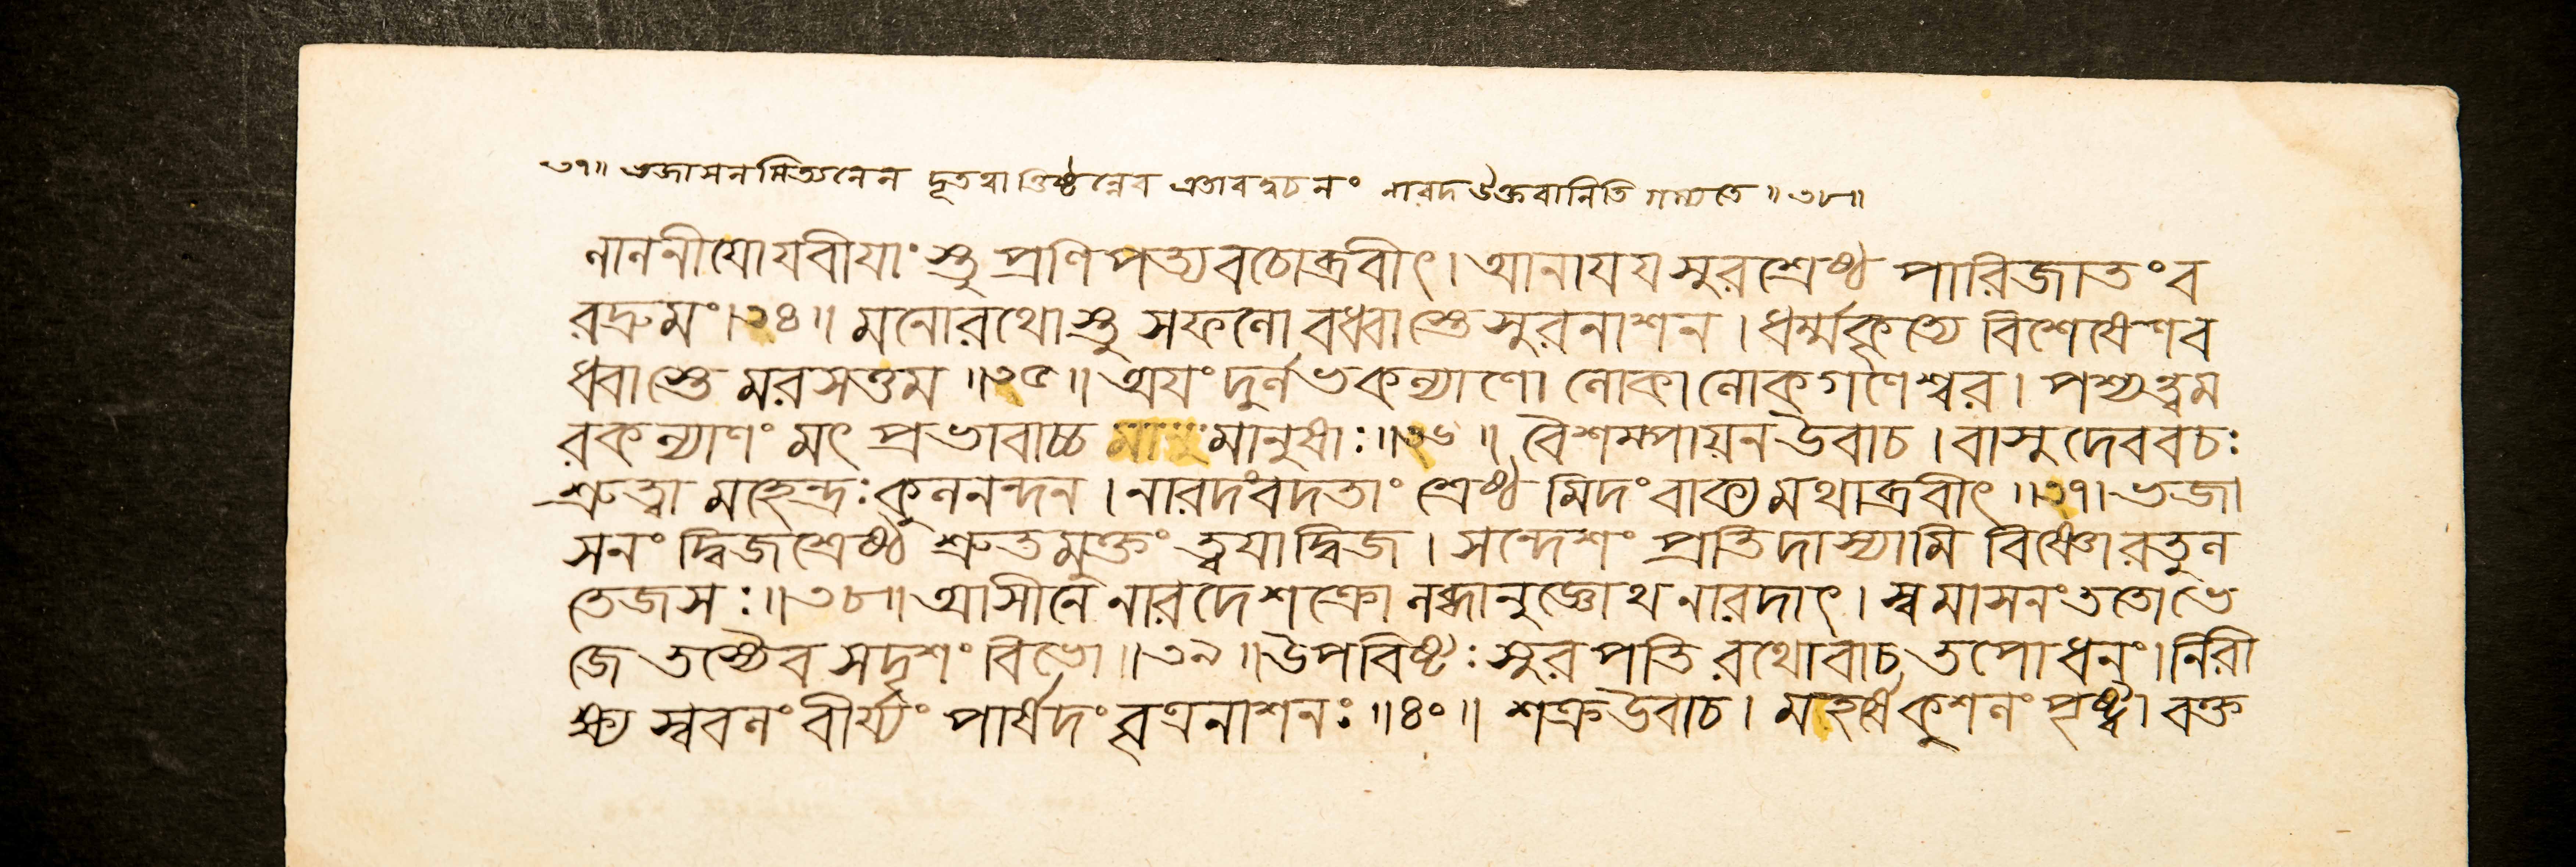 ৩৭॥ ভজাসনমিত্যনেন দূতবাত্তিষ্ঠন্নেব এতাবদ্বচনং নারদউক্তবানিতি গম্যতে॥৩৮॥
নাননীযোযবীযাংস্তু প্রণিপত্যবঠোব্রবীৎ। আনাযযসুরশ্রেষ্ঠ পারিজাতংব
রদ্রুমং॥৩৪॥ মনোরথোস্তু সফনো বধ্বাস্তেসুরনাশন। ধর্ম্মকৃত্যে বিশেষেণব
ধ্বাস্তেমরসত্তম॥৩৫॥ অযংদুর্নভকন্যাণো নোকানোকগণেশ্বর। পশ্যন্ত্বম
রকন্যাণং মৎ প্রভাবাচ্চ মানুষাঃ॥৩৬॥ বৈশম্পায়নউবাচ। বাসুদেববচঃ
শ্রুত্বা মহেন্দ্রঃকুননন্দন। নারদংবদতাং শ্রেষ্ঠ মিদংবাক্যমথাব্রবীৎ॥৩৭॥ভজা
সনং দ্বিজশ্রেষ্ঠ শ্রুতমুক্তং ত্বযাদ্বিজ। সন্দেশং প্রতিদাস্যামি বিষ্ণোরতুন
তেজসঃ॥৩৮॥আসীনে নারদেশক্রো নব্ধানুজ্ঞোথনারদাৎ। স্বমাসনংততোভে
জে তস্যৈব সদৃশং বিভো॥৩৯॥উপবিষ্টঃ সুরপতি রথোবাচ তপোধনং। নিরী
ক্ষ্য স্ববনং বীর্য্যং পার্ষদং বৃত্রনাশনঃ॥৪০॥ শক্রউবাচ। মহর্ষে কুশনং পৃষ্ট্বা বক্ত